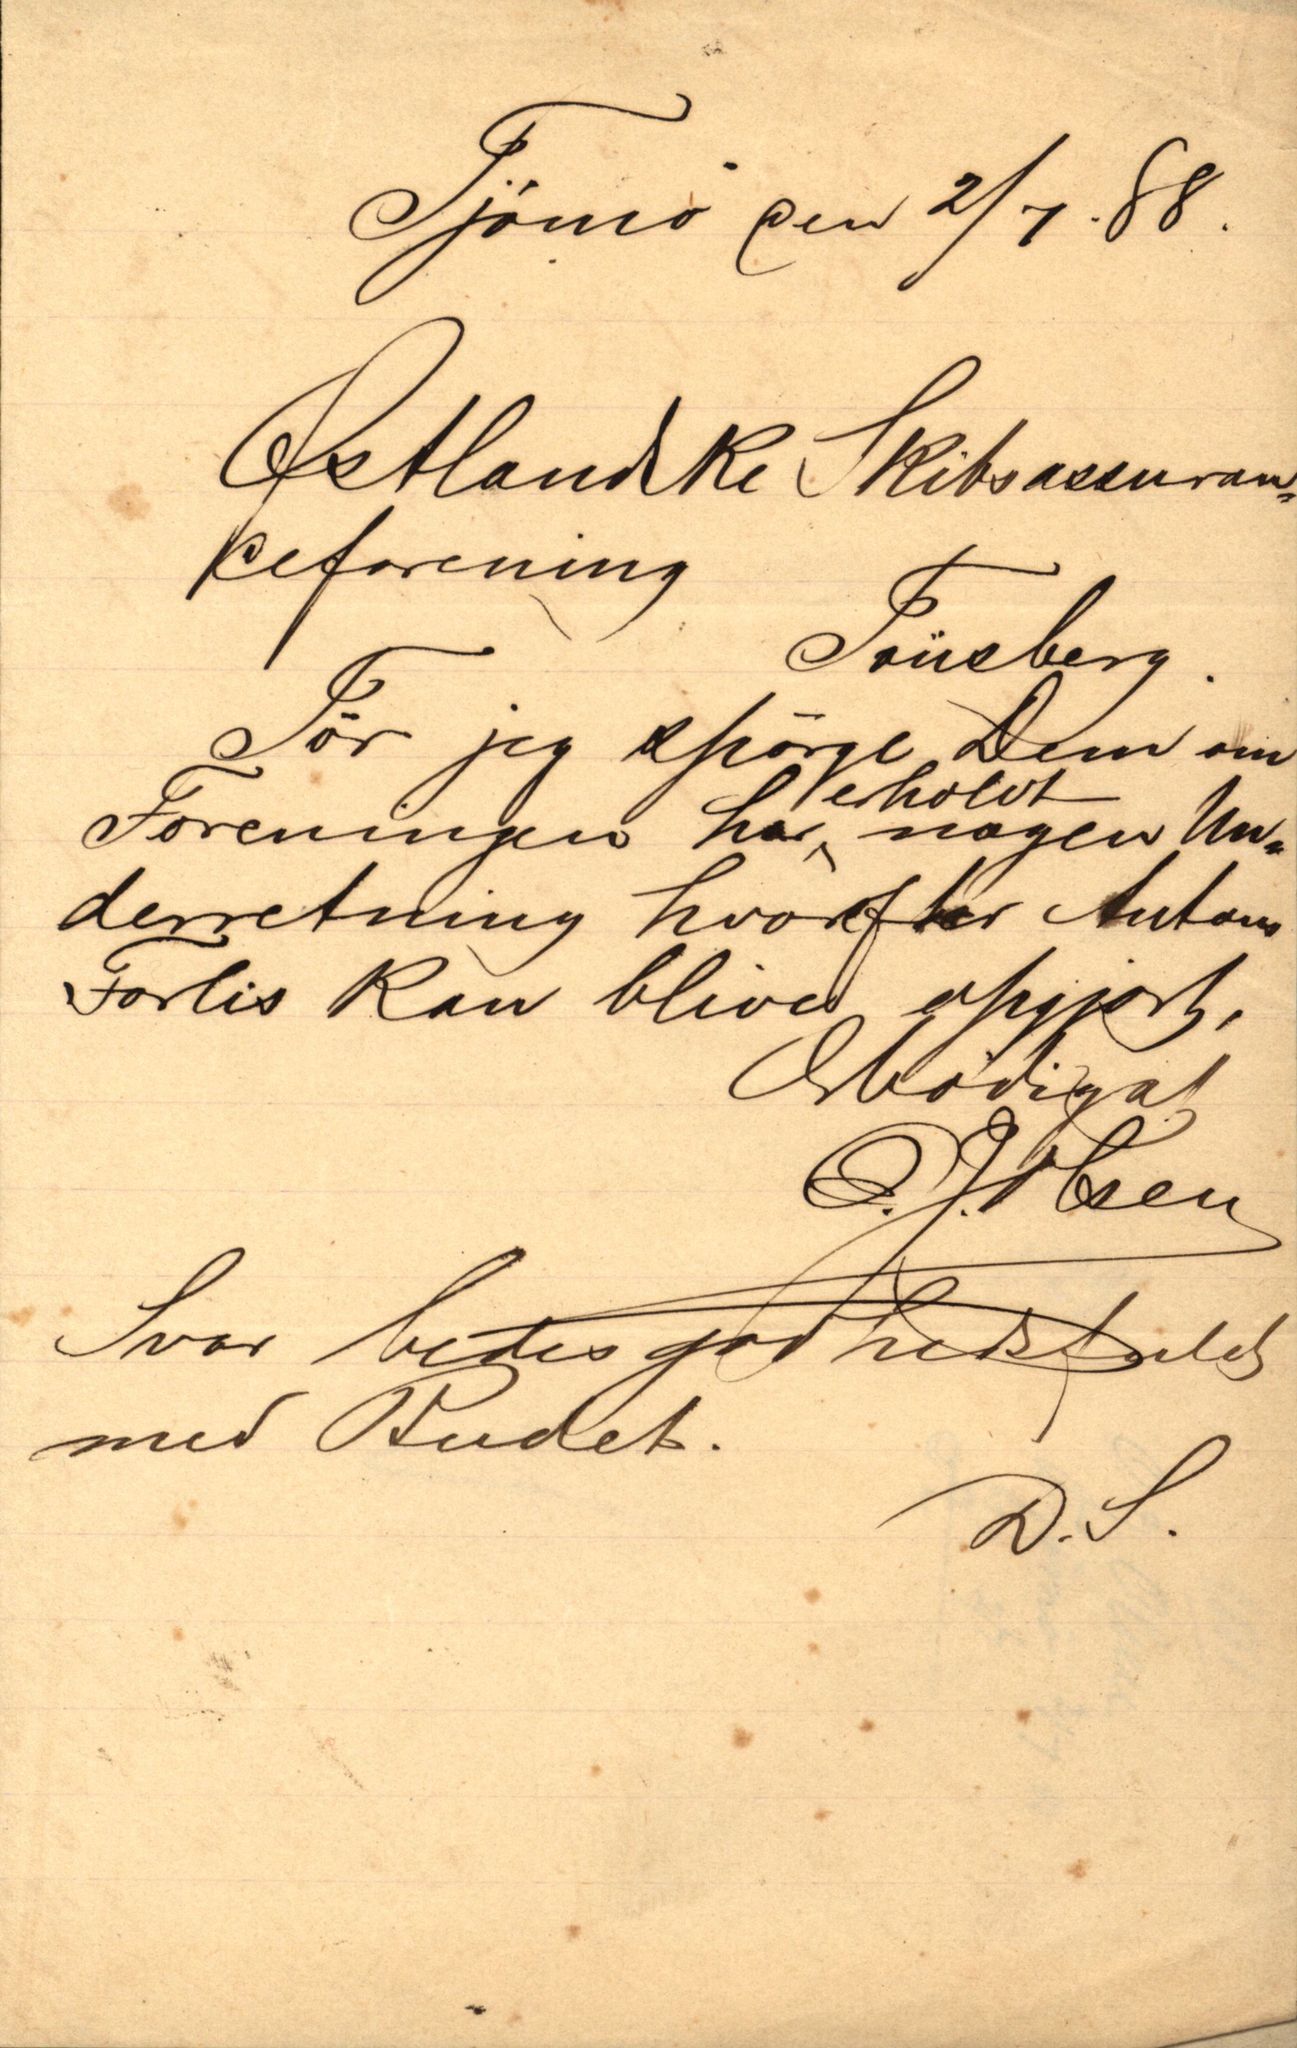 Tjömö den 2/7. 88.
Østlandske Skibsassuran-
ceforening
Tønsberg.
Tör jeg spörge Dem om
Foreningen har erholdt nogen Un-
derretning hvorefter Antons
Forlis kan blive opgjort.
Ærbödigst
O. J. Olsen
Svar bedes godhedsfuldt
med Budet.
D. S.